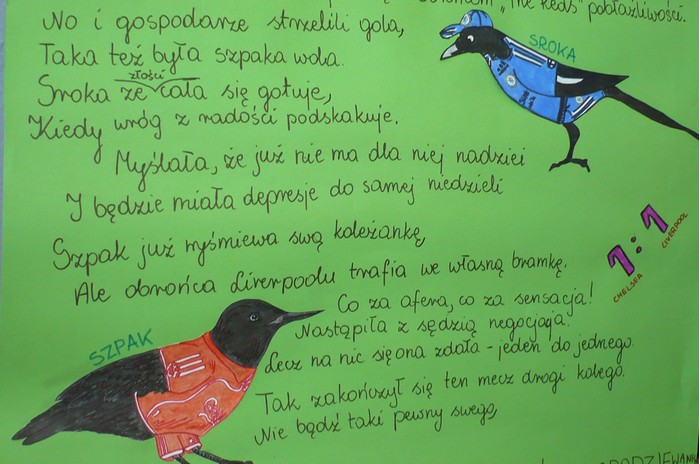 "The Reds" pobłażliwości.
No i gospodarze strzelili gola,
Taka też była szpaka wola.
SROKA
złości
Sroka ze cała się gotuje,
Kiedy wróg z radości podskakuje.
Myślała, że już nie ma dla niej nadziei
I będzie miała depresję do samej niedzieli
Szpak już wyśmiewa swą koleżankę,
Ale obrońca Liverpoolu trafia we własną bramkę.
1:1
CHELSEA
LIVERPOOL
Co za afera, co za sensacja!
Nastąpiła z sędzią negocjacja.
SZPAK
Lecz na nic się ona zdała - jeden do jednego.
Tak zakończył się ten mecz drogi kolego.
Nie bądź taki pewny swego,